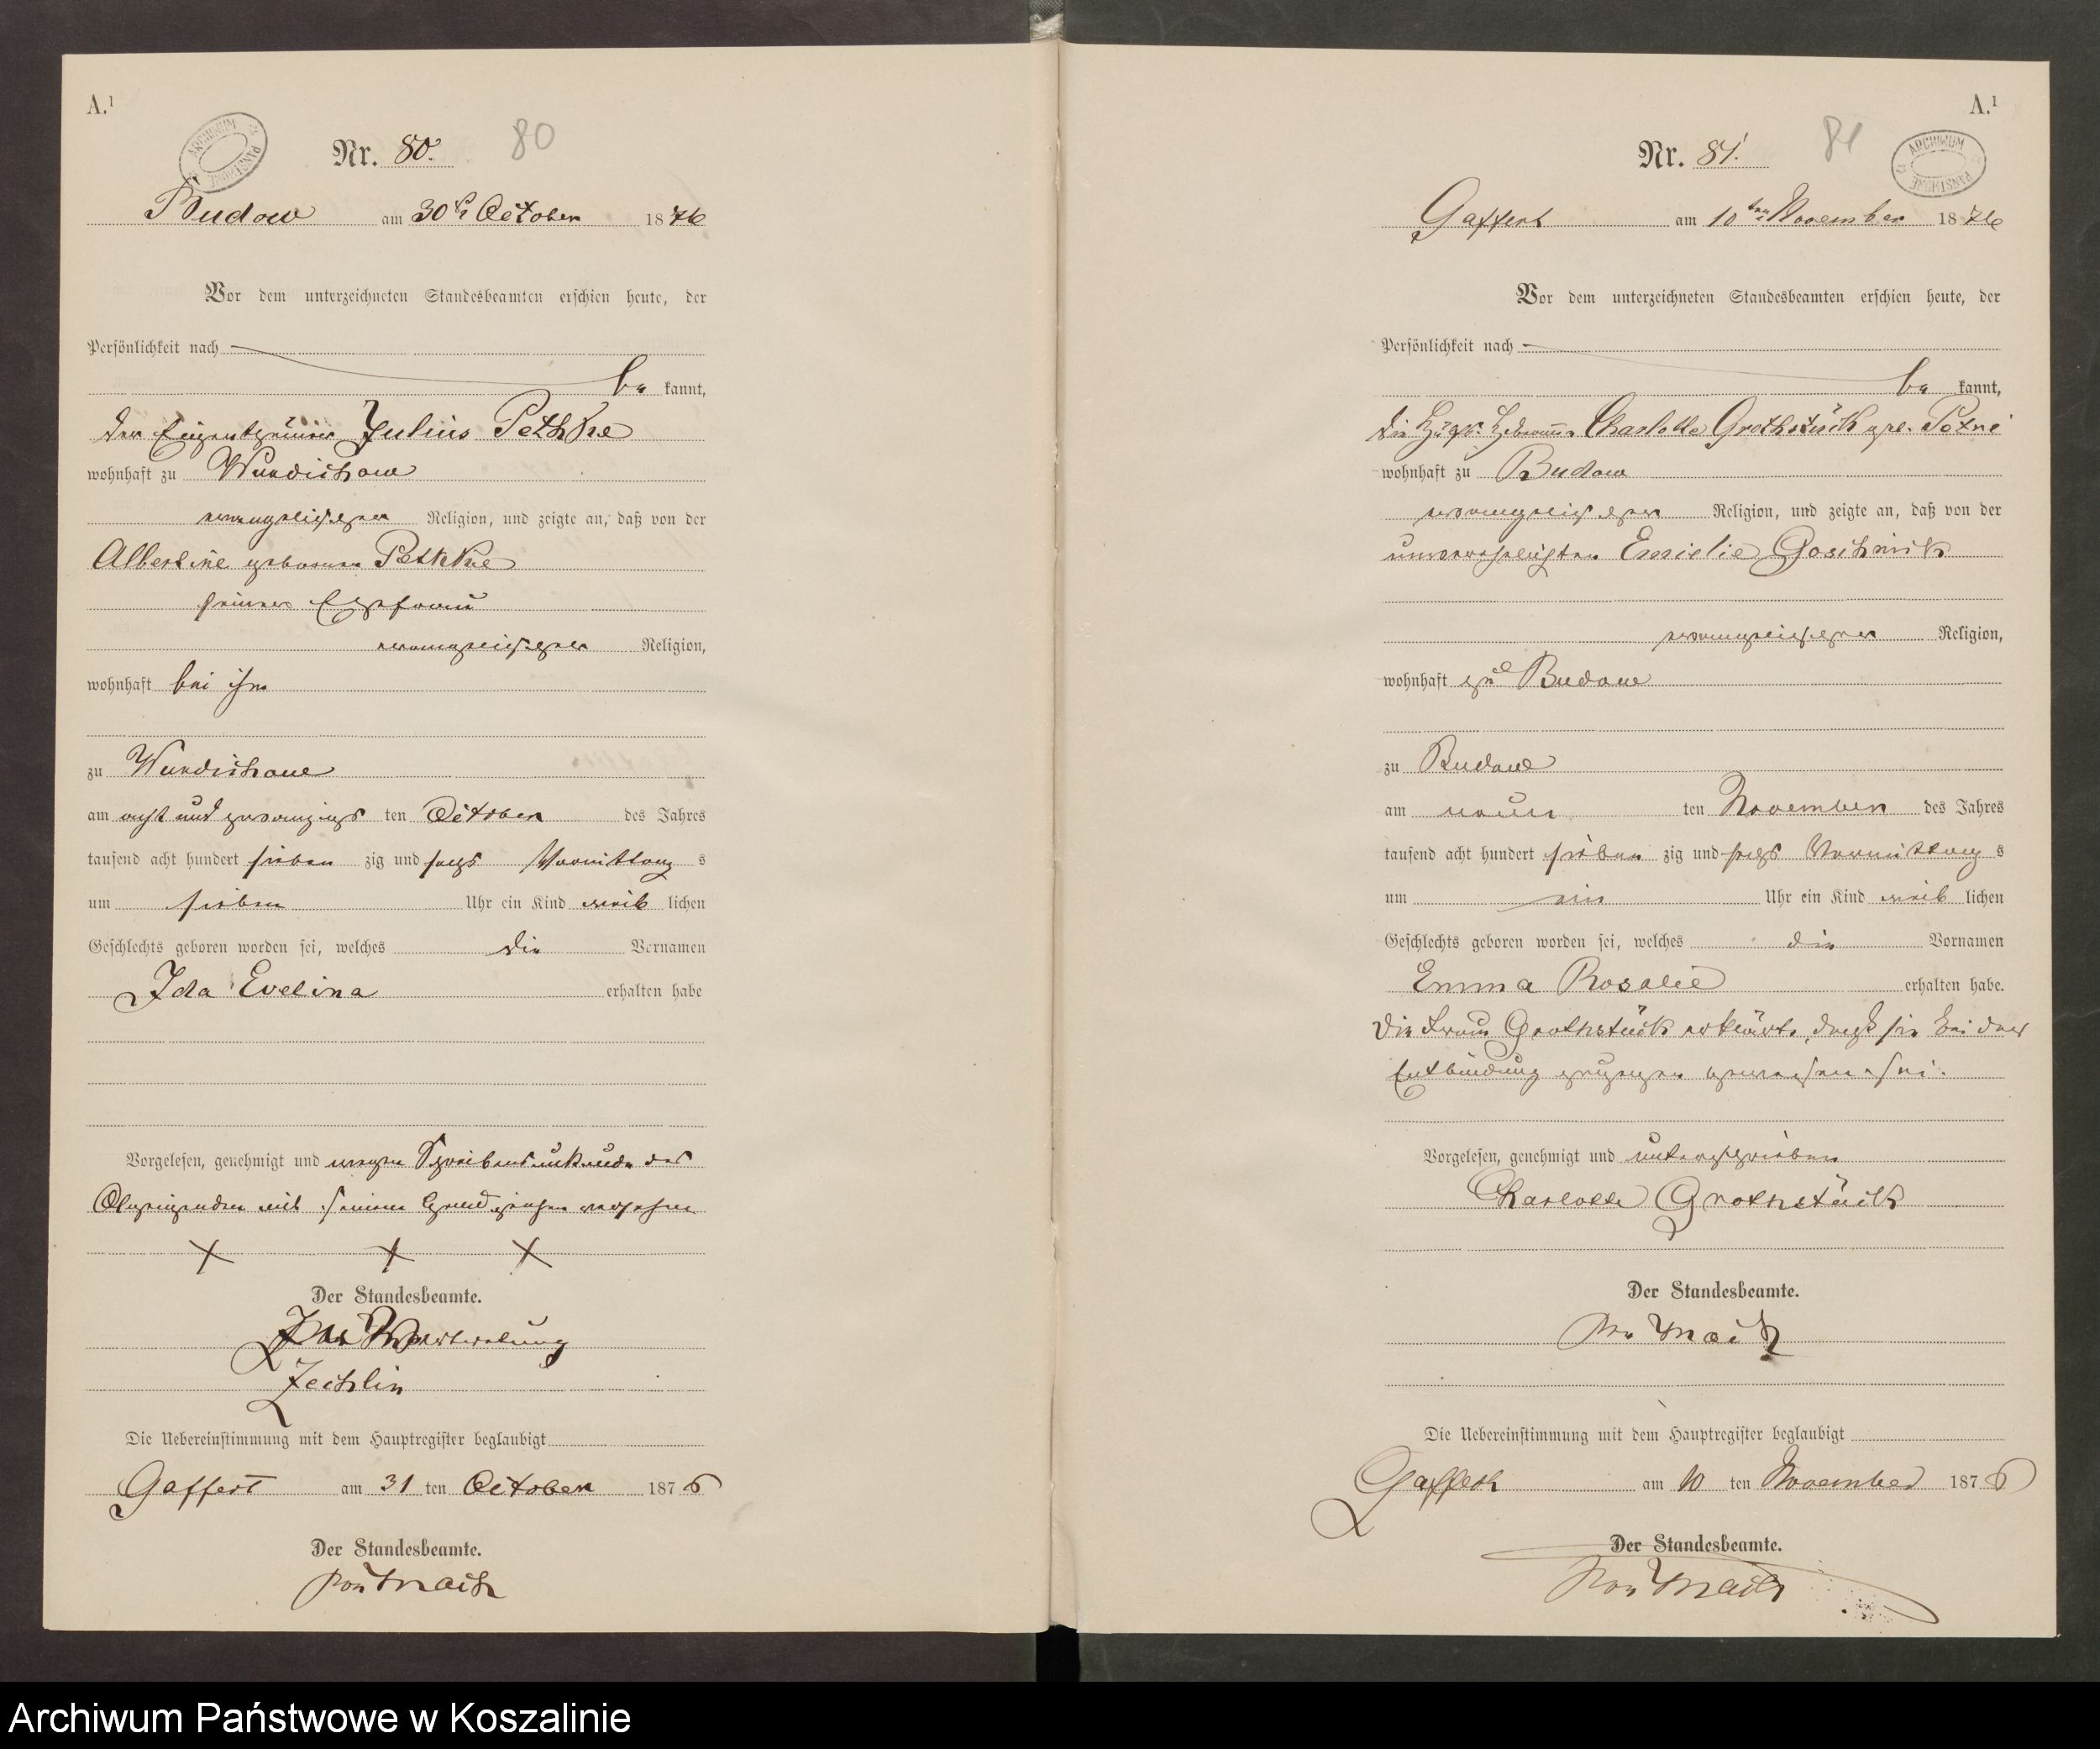 A.¹
ARCHIWUM PAŃSTWOWE
Nr. 80. 80
Budow am 30th October 1876
Vor dem unterzeichneten Standesbeamten erschien heute, der
Persönlichkeit nach
be kannt,
der Eigenthümer Julius Pethke
wohnhaft zu Wundichow
evangelischer Religion, und zeigte an, daß von der
Albertine geborenen Pethke
seiner Ehefrau
evangelischer Religion,
wohnhaft bei ihm
zu Wundichow
am acht und zwanzigs ten October des Jahres
tausend acht hundert sieben zig und sechs Vormittag s
um sieben Uhr ein Kind weib lichen
Geschlechts geboren worden sei, welches die Vornamen
Ida Evelina erhalten habe
Vorgelesen, genehmigt und wegen Schreibensunkunde des
Anzeigenden mit seinem Handzeichen versehen
X X X
Der Standesbeamte.
In Vertretung
Zechlin
Die Uebereinstimmung mit dem Hauptregister beglaubigt
Gaffert am 31 ten October 1876
Der Standesbeamte.
von
A.¹
ARCHIWUM PAŃSTWOWE
Nr. 81. 81
Gaffert am 10ten November 1876
Vor dem unterzeichneten Standesbeamten erschien heute, der
Persönlichkeit nach
be kannt,
die Hebamme Charlotte Grothstück geb. Petri
wohnhaft zu Budow
evangelischer Religion, und zeigte an, daß von der
unverehelichten Emilie Goschnick
evangelischer Religion,
wohnhaft zu Budow
zu Budow
am neun ten November des Jahres
tausend acht hundert sieben zig und sechs Vormittag s
um ein Uhr ein Kind weib lichen
Geschlechts geboren worden sei, welches die Vornamen
Emma Rosalie erhalten habe.
Die Frau Grothstück erklärte, daß sie bei der
Entbindung zugegen gewesen sei.
Vorgelesen, genehmigt und unterschrieben
Charlotte Grothstück
Der Standesbeamte.
von
Die Uebereinstimmung mit dem Hauptregister beglaubigt
Gaffert am 10 ten November 1876
Der Standesbeamte.
von
Archiwum Państwowe w Koszalinie